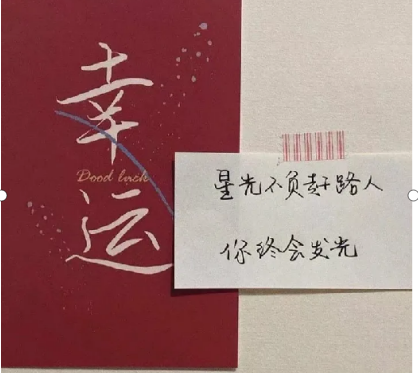 幸
Dood luck
运
星光不负赶路人
你终会发光